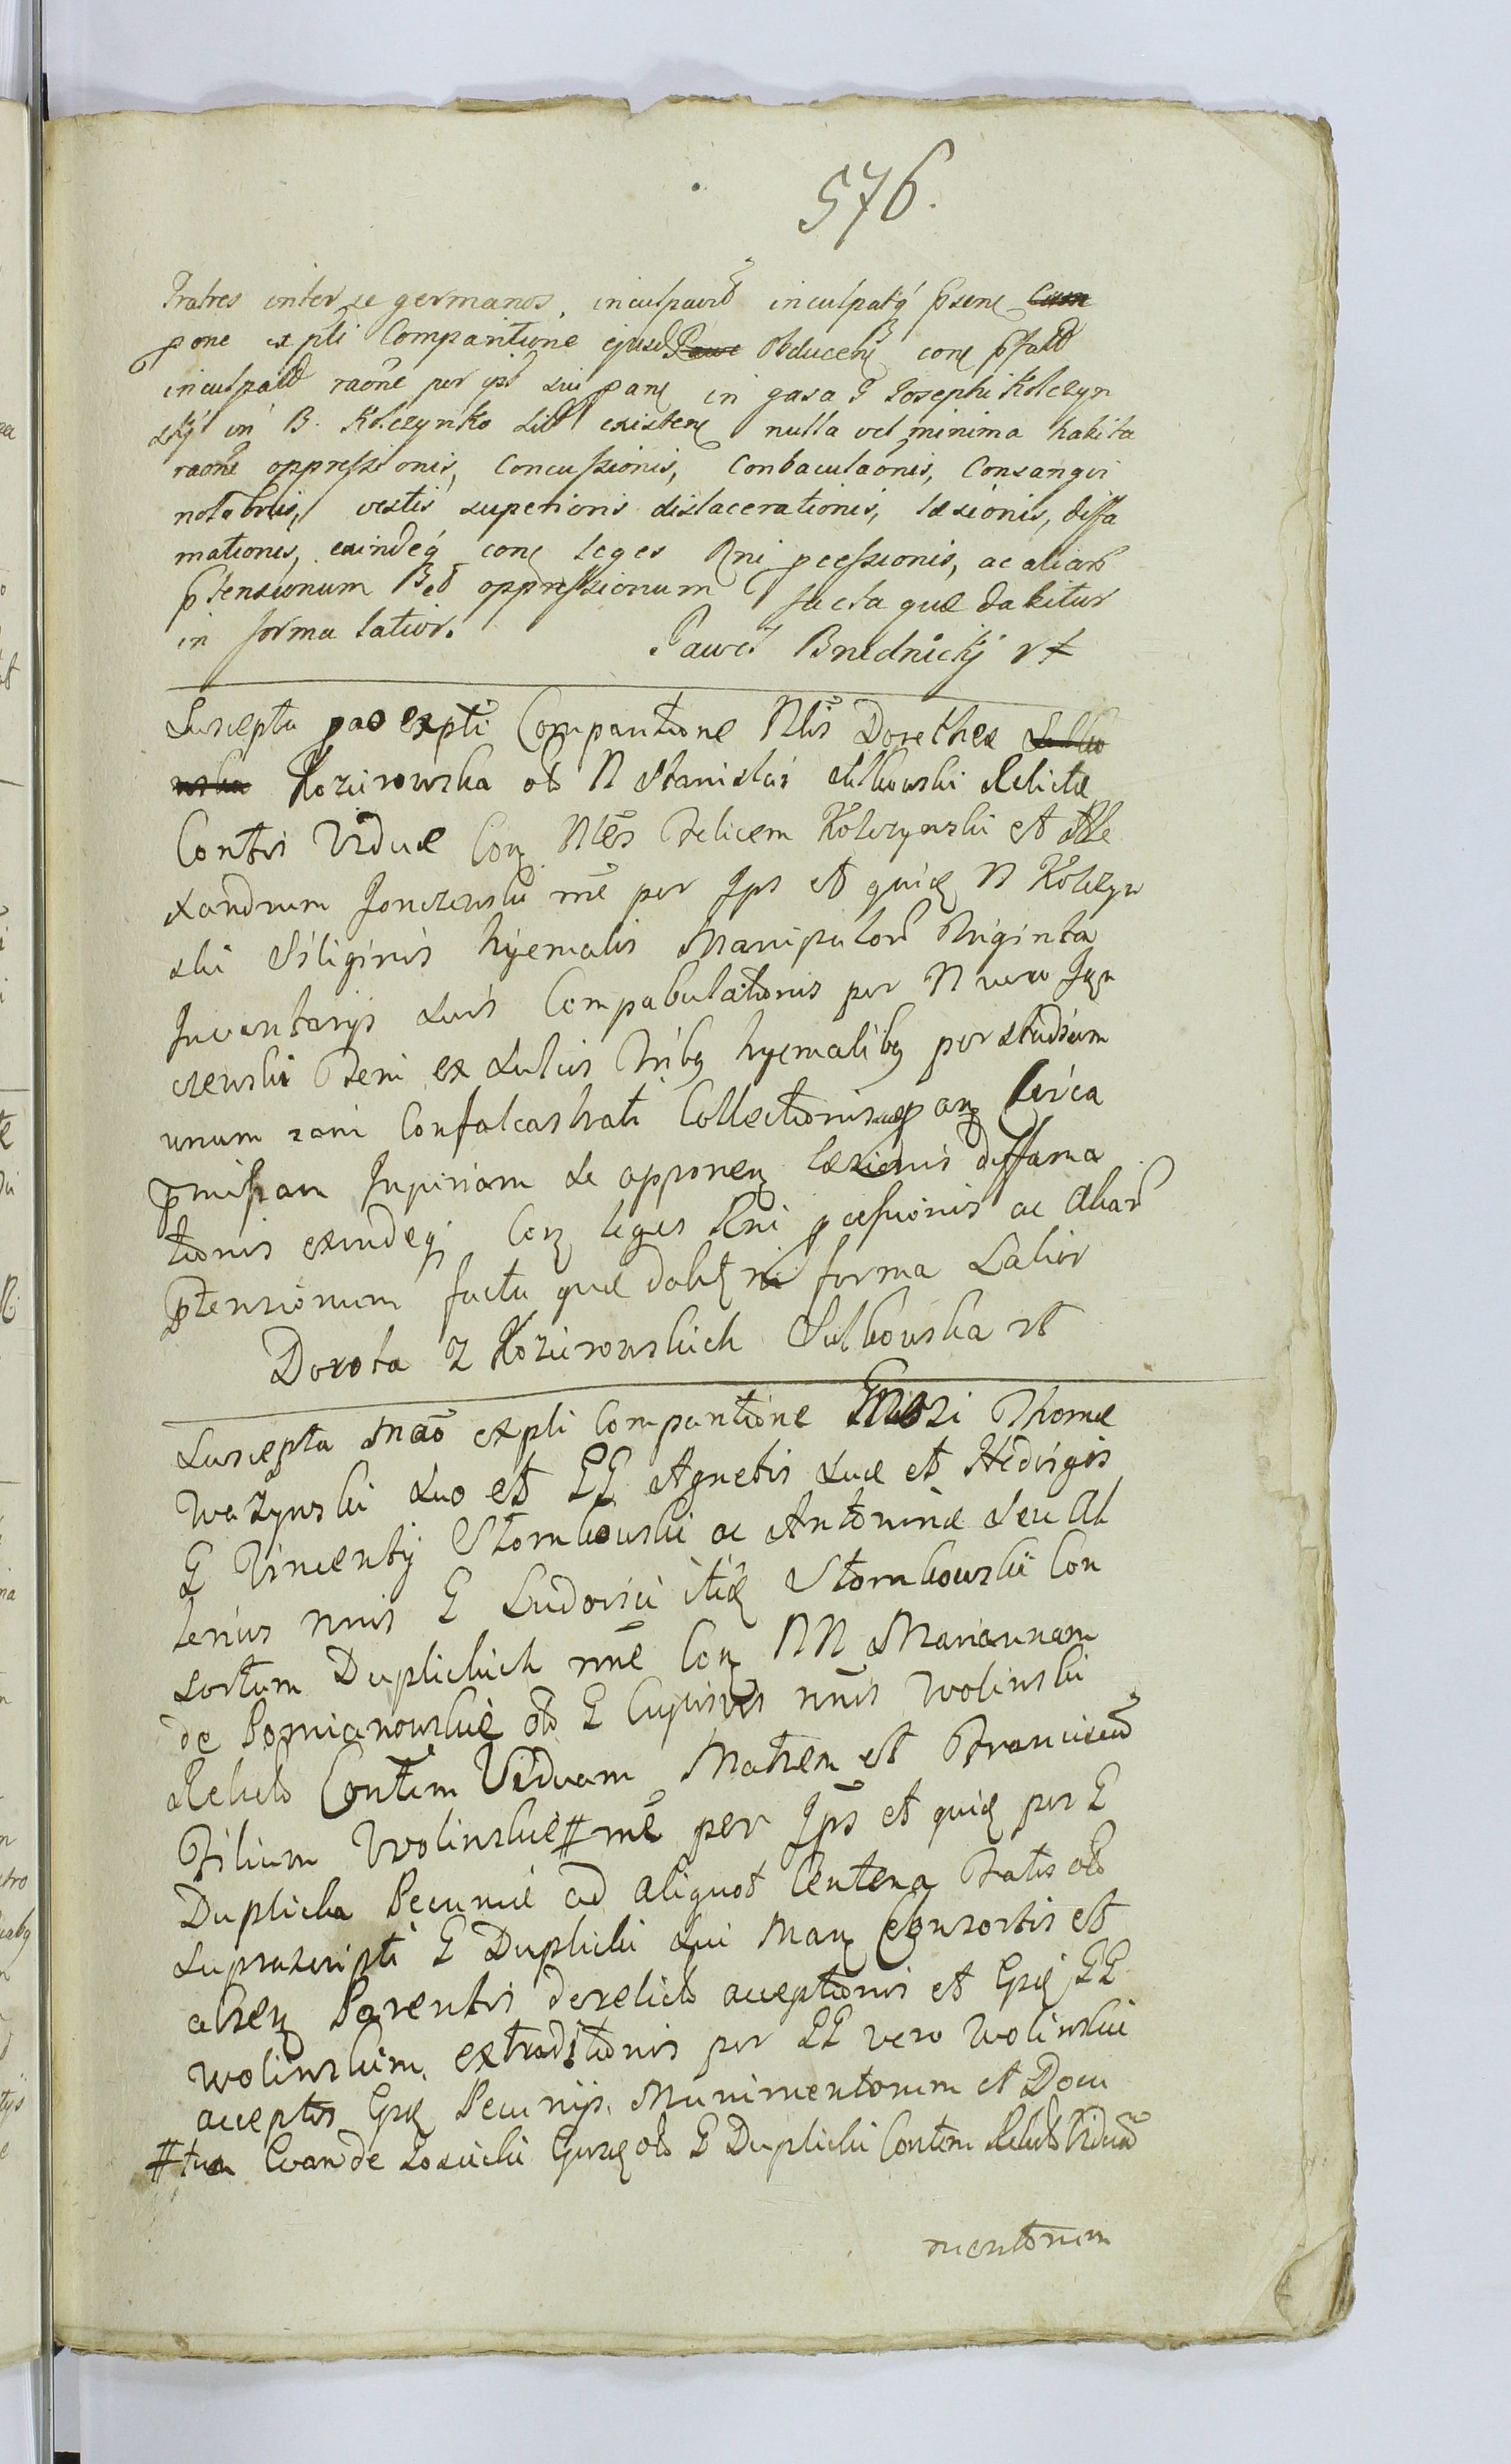 576.
Fratres inter se germanos, inculpavit inculpatq psene
pone expli Comparitione ejusd obducen con pfatd
inculpatd raone per ips sui pane in gaza G Josephi Kolczyn
skij in B. Kolczynko sitt existen nulla vel minima habita
raone oppressionis, Concussionis, Conbaculaonis, Consangvi
nolabriis, vestis superioris dislacerationis, læsionis, diffa
mationis, exindeq con leges Rni pcessionis, ac aliar
ptensionum oppressionum facta quæ dabitur
in forma latior. Paweł Brzednickij
Suscepta pao expli Comparitione Nlis Dorotheæ
Kozirowska ob N Stanislai Sulkowski Relictæ
Contis Viduæ Con Nles Felicem Kolczynski et Ale
xandrum Jonczewski me per Ips et quid N Kolczyn
ski Siliginis hyemalis Manipulor Triginta
Inventarijs suis Compabulationis per N vero Jon
czewski Feni ex Sulcis Tribq hyemalibq per studium
unum zani Confalcastrati Collectionisq an Circa
pmissam Injuriam se apponen læsionis diffama
tionis exindeq Con leges Rni pcessionis ac aliar
ptensionum facta quæ dabit in forma Latior
Dorota z Kozirowskich Sulkowska
Suscepta Mao expli Comparitione Thomæ
Wazynski suo et GG Agnetis suæ et Hedvigis
G Vincentij Stombowski ac Antoninæ seu al
terius nnis G Ludovici itid Stombowski Con
sortum Duplickich nne Con NN Mariannam
de Pomianowskie ob G Cujusvis nnis Wolinski
Relict Contem Viduam Matrem et Francisen
Filium Wolinskie # me per Ips et quid per G
Duplicka Pecuniæ ad aliquot Centena Tatis ob
suprascripti G Duplicki sui Man Consortis et
absen Parentis derelict acceptionis et GG
Wolinskim extraditionis per GG vero Wolinskie
acceptis Pecunijs, Munimentorum et Docu
# Evan de Losicki ob G Duplicki Contem Relict Viduam
mentorum